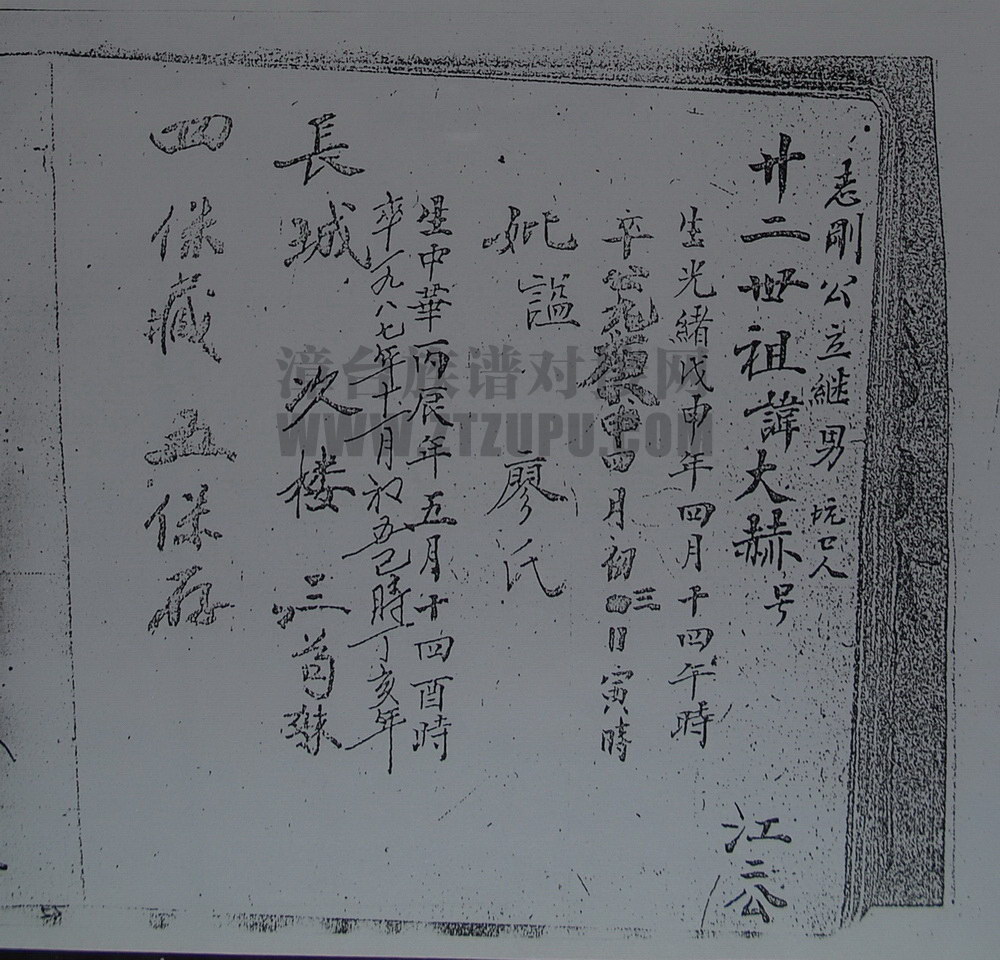 志剛公立继男 坑口人
廿二世祖諱大赫号 江二公
生光緒戊申年四月十四午時
卒 庚申四月初三日寅時
妣諡 廖氏
生中華丙辰年五月十四酉時
卒一九八七年十一月初五巳時丁亥年
長城 次楼 三首
四保藏 五保存
漳台族谱对接网
WWW.ZTZUPU.COM